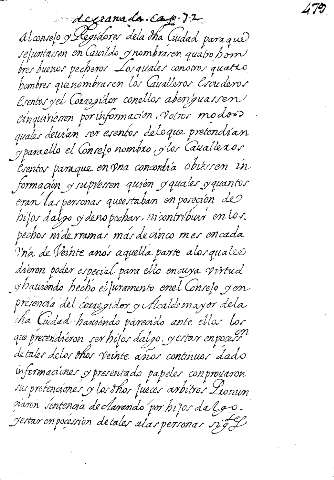 479
de granada. Cap. 72
al consejo y Regidores de la dha Ciudad para que
se juntassen en Cavildo y nombrasen quatro hom
bres buenos pecheros. Los quales con otros quatro
hombres que nombrasen los Cavalleros Escuderos
Esentos y el Corregidor con ellos aberiguassem
Einquiriesen por informacion. Y otros modos
quales devian ser esentos de lo que pretendian
y para ello el Consejo nombro, y los Cavalleros
Esentos para que en Una concordia obiessen in
formacion y supiessen quien y quales y quantos
eran las personas que estaban en posecion de
hijos dalgo y de no pechar, ni contribuir en los
pechos ni derramas mas de cinco mes en cada
Una de Veinte anos aquella parte a los quale
dieron poder especial para ello en cuya virtud
y haviendo hecho el juramento en el Consejo y en
presencia del corregidor y Alcalde mayor de la
dha Ciudad haviendo parecido ante ellos los
que pretendieron ser hijos dalgo. y estar en poces.on
de tales de los dhos Veinte años continuos dado
informaciones y presentado papeles comprovaron
sus pretenciones y los dhos jueces arbitros Pronun
ciaron sentencia declarando por hijos dalgo
y estar en pocession de tales a las personas sig.tes